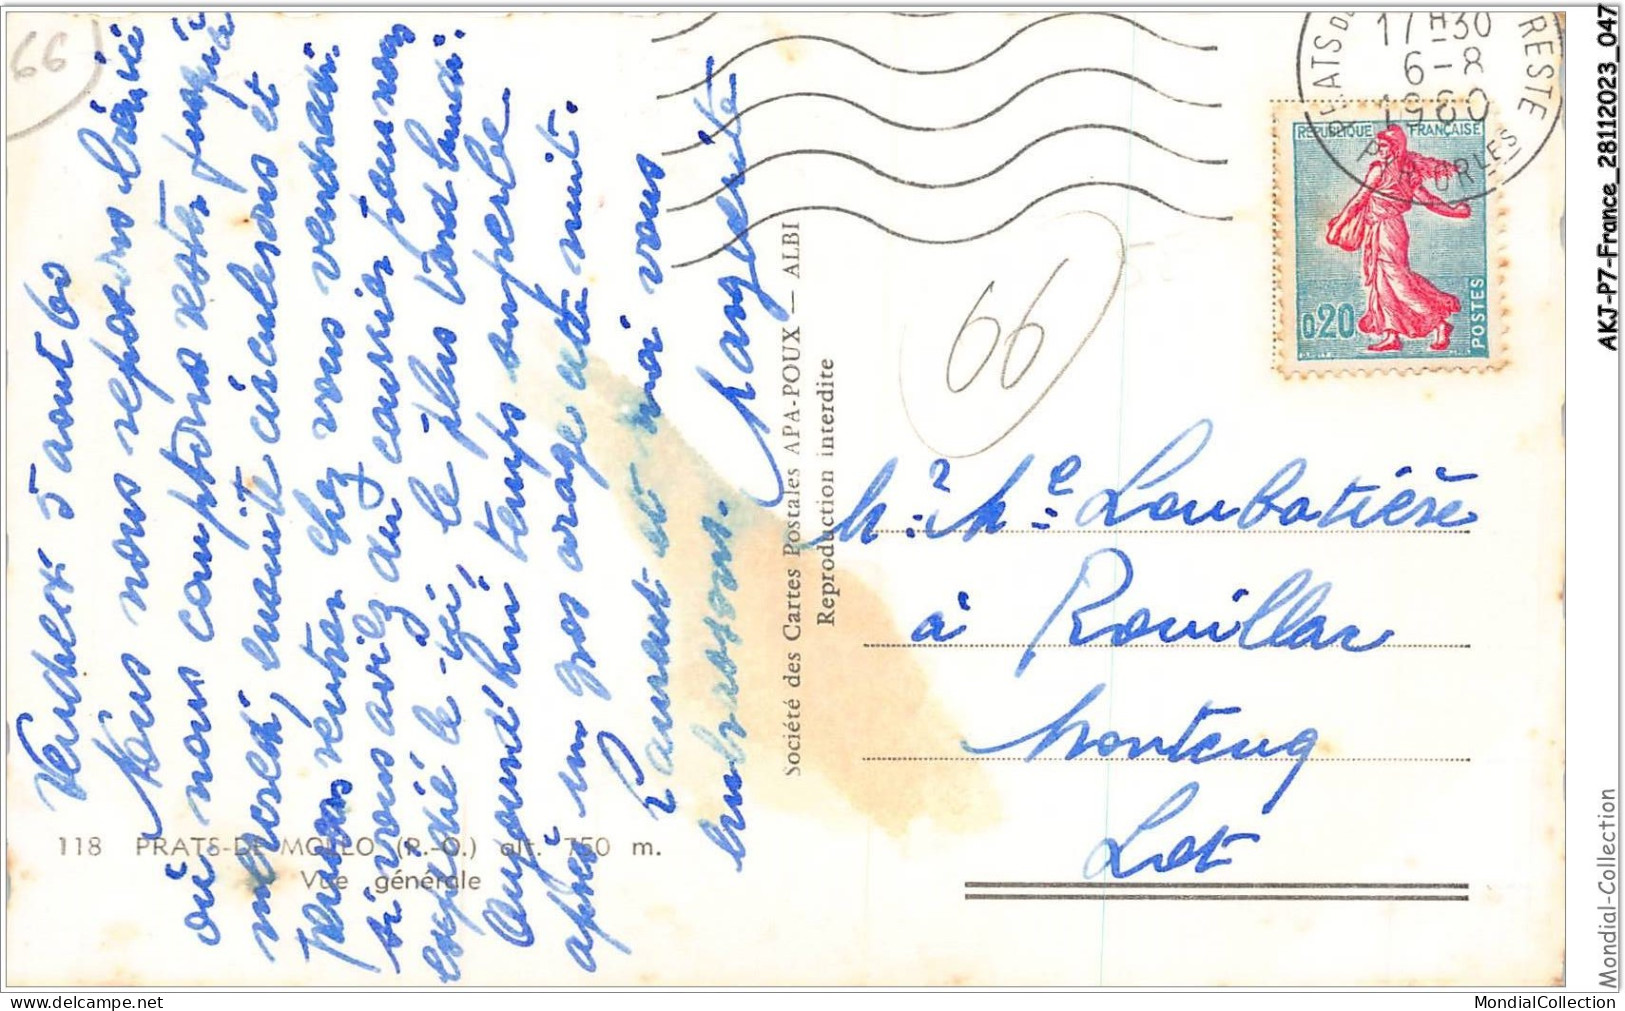 66
Vendredi 5 aout 60
Nous nous reposons bien ici
où nous comptons rester jusqu'à
mercredi, ensuite circulerons et
pensons rentrer chez vous vendredi.
si vous avez du courrier pour nous
expédié le -ici, le plus tard lundi.
Aujourd'hui temps superbe
après un gros orage cette nuit.
Laurent et moi vous
embrassons.
Marguerite
118 PRATS-DE MOLLO (P.-O.) alt. 750 m.
Vue générale
Société des Cartes Postales APA-POUX — ALBI
Reproduction interdite
66
PRATS DE
RESTE
17H30
6-8
1960
PYR. ORLES
REPUBLIQUE FRANÇAISE
0,20
POSTES
Mr. Me Loubatière
à Rouillac
Montcuq
Lot
AKJ-P7-France_28112023_047
Mondial-Collection
delcampe.net
MondialCollection